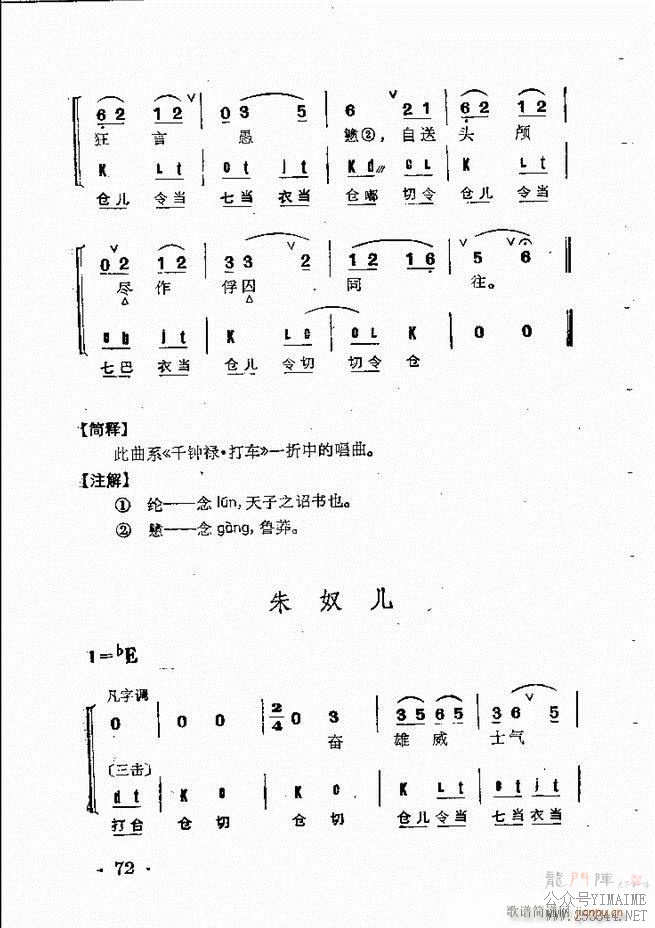 6 2 1 2 | 0 3 5 | 6 2 1 | 6 2 1 2
狂 言 愚 戆②，自送 头 颅
K L t | C t j t | K d C L | K L t
仓儿 令当 七当 衣当 仓嘟 切令 仓儿 令当
0 2 1 2 | 3 3 2 | 1 2 1 6 | 5 6
尽 作 俘囚 同 往。
c b j t | K L C | C L K | 0 0
七巴 衣当 仓儿 令切 切令 仓
【简释】
此曲系《千钟禄·打车》一折中的唱曲。
【注解】
① 纶——念 lún, 天子之诏书也。
② 戆——念 gàng, 鲁莽。
朱 奴 儿
1=♭E
凡字调
0 | 0 0 | 2/4 0 3 | 3 5 6 5 | 3 6 5
奋 雄 威 士气
〔三击〕
d t | K C | K C | K L t | C t j t
打台 仓 切 仓 切 仓儿 令当 七当 衣当
· 72 ·
龍門陣
公众号YIMAIME
歌谱简谱网